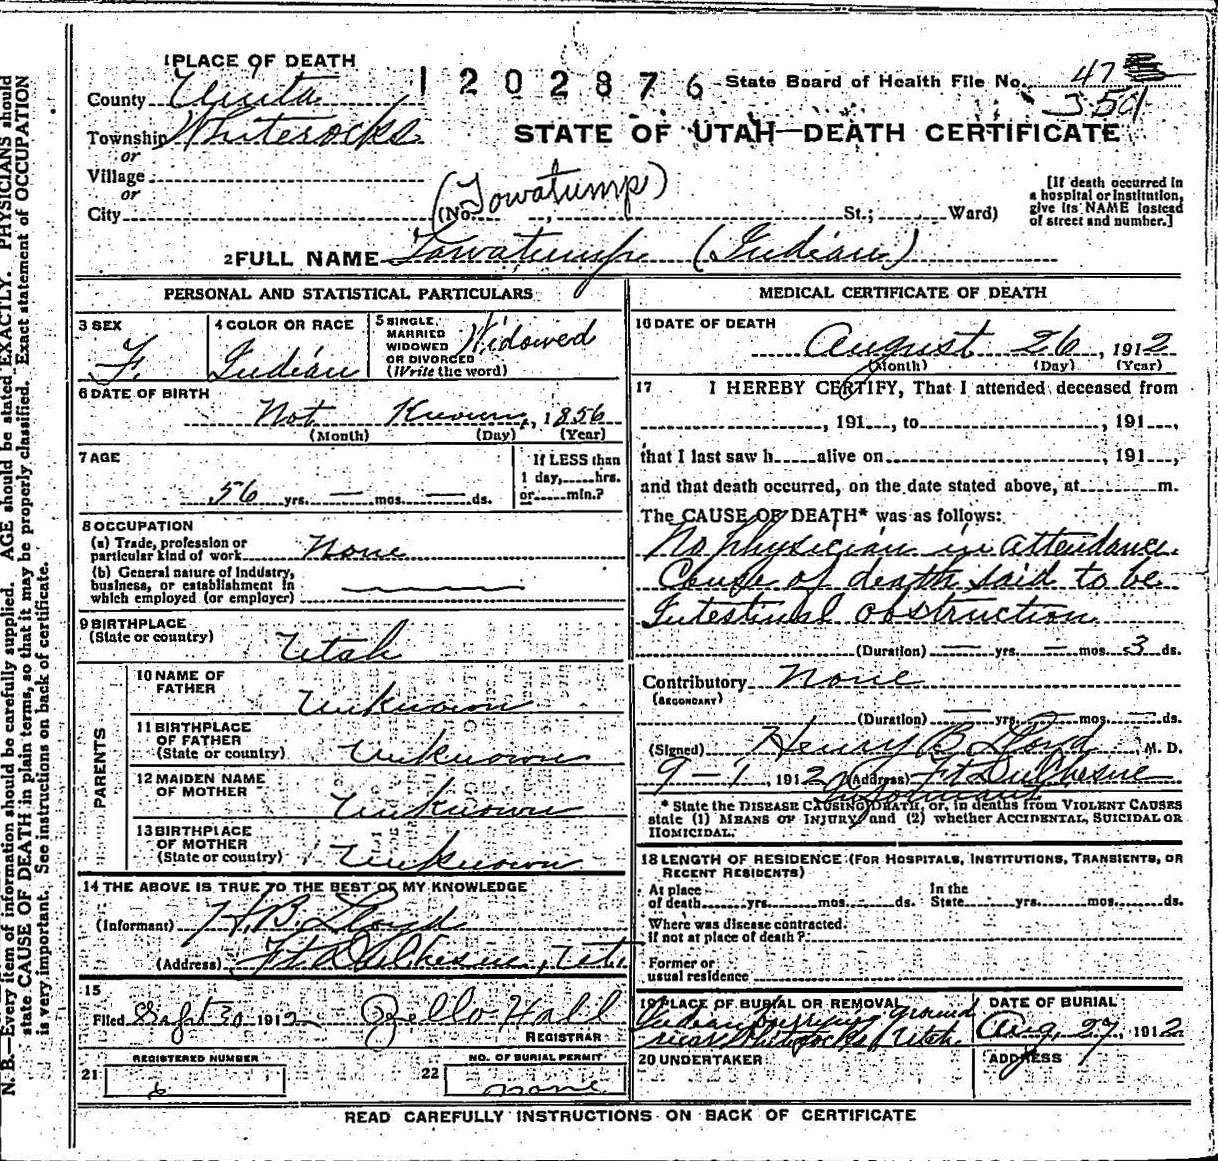 1 PLACE OF DEATH
1202876 State Board of Health File No. 47
County Uinta
Township Whiterocks
STATE OF UTAH—DEATH CERTIFICATE
or
Village
or
City (No. , St.; Ward)
(Towatump)
[If death occurred in
a hospital or institution,
give its NAME instead
of street and number.]
2 FULL NAME Towatump (Indian)
PERSONAL AND STATISTICAL PARTICULARS
3 SEX
F.
4 COLOR OR RACE
Indian
5 SINGLE,
MARRIED
WIDOWED
OR DIVORCED
(Write the word)
Widowed
6 DATE OF BIRTH
Not Known, 1856
(Month) (Day) (Year)
7 AGE
56 yrs. — mos. — ds.
If LESS than
1 day, hrs.
or min.?
8 OCCUPATION
(a) Trade, profession or
particular kind of work None
(b) General nature of Industry,
business, or establishment in
which employed (or employer)
9 BIRTHPLACE
(State or country) Utah
PARENTS
10 NAME OF
FATHER Unknown
11 BIRTHPLACE
OF FATHER
(State or country) Unknown
12 MAIDEN NAME
OF MOTHER Unknown
13 BIRTHPLACE
OF MOTHER
(State or country) Unknown
14 THE ABOVE IS TRUE TO THE BEST OF MY KNOWLEDGE
(Informant) H. B. Lloyd
(Address) Ft Duchesne, Utah
15
Filed Sept 30 1912 Zello Hall
REGISTRAR
REGISTERED NUMBER
21 6
NO. OF BURIAL PERMIT
22 none
MEDICAL CERTIFICATE OF DEATH
16 DATE OF DEATH
August 26, 1912
(Month) (Day) (Year)
17 I HEREBY CERTIFY, That I attended deceased from
, 191 , to , 191 ,
that I last saw h alive on , 191 ,
and that death occurred, on the date stated above, at m.
The CAUSE OF DEATH* was as follows:
No physician in attendance.
Cause of death said to be
Intestinal obstruction
(Duration) — yrs. — mos. 3 ds.
Contributory None
(SECONDARY)
(Duration) — yrs. — mos. — ds.
(Signed) Henry B. Lloyd M. D.
9-1, 1912 (Address) Ft Duchesne
* State the DISEASE CAUSING DEATH, or, in deaths from VIOLENT CAUSES
state (1) MEANS OF INJURY; and (2) whether ACCIDENTAL, SUICIDAL OR
HOMICIDAL.
18 LENGTH OF RESIDENCE (FOR HOSPITALS, INSTITUTIONS, TRANSIENTS, OR
RECENT RESIDENTS)
At place
of death yrs. mos. ds.
In the
State yrs. mos. ds.
Where was disease contracted.
If not at place of death?
Former or
usual residence
19 PLACE OF BURIAL OR REMOVAL
Indian burying ground
near Whiterocks, Utah.
DATE OF BURIAL
Aug. 27, 1912
20 UNDERTAKER
ADDRESS
READ CAREFULLY INSTRUCTIONS ON BACK OF CERTIFICATE
N. B.—Every item of information should be carefully supplied. AGE should be stated EXACTLY. PHYSICIANS should
state CAUSE OF DEATH in plain terms, so that it may be properly classified. Exact statement of OCCUPATION
is very important. See instructions on back of certificate.